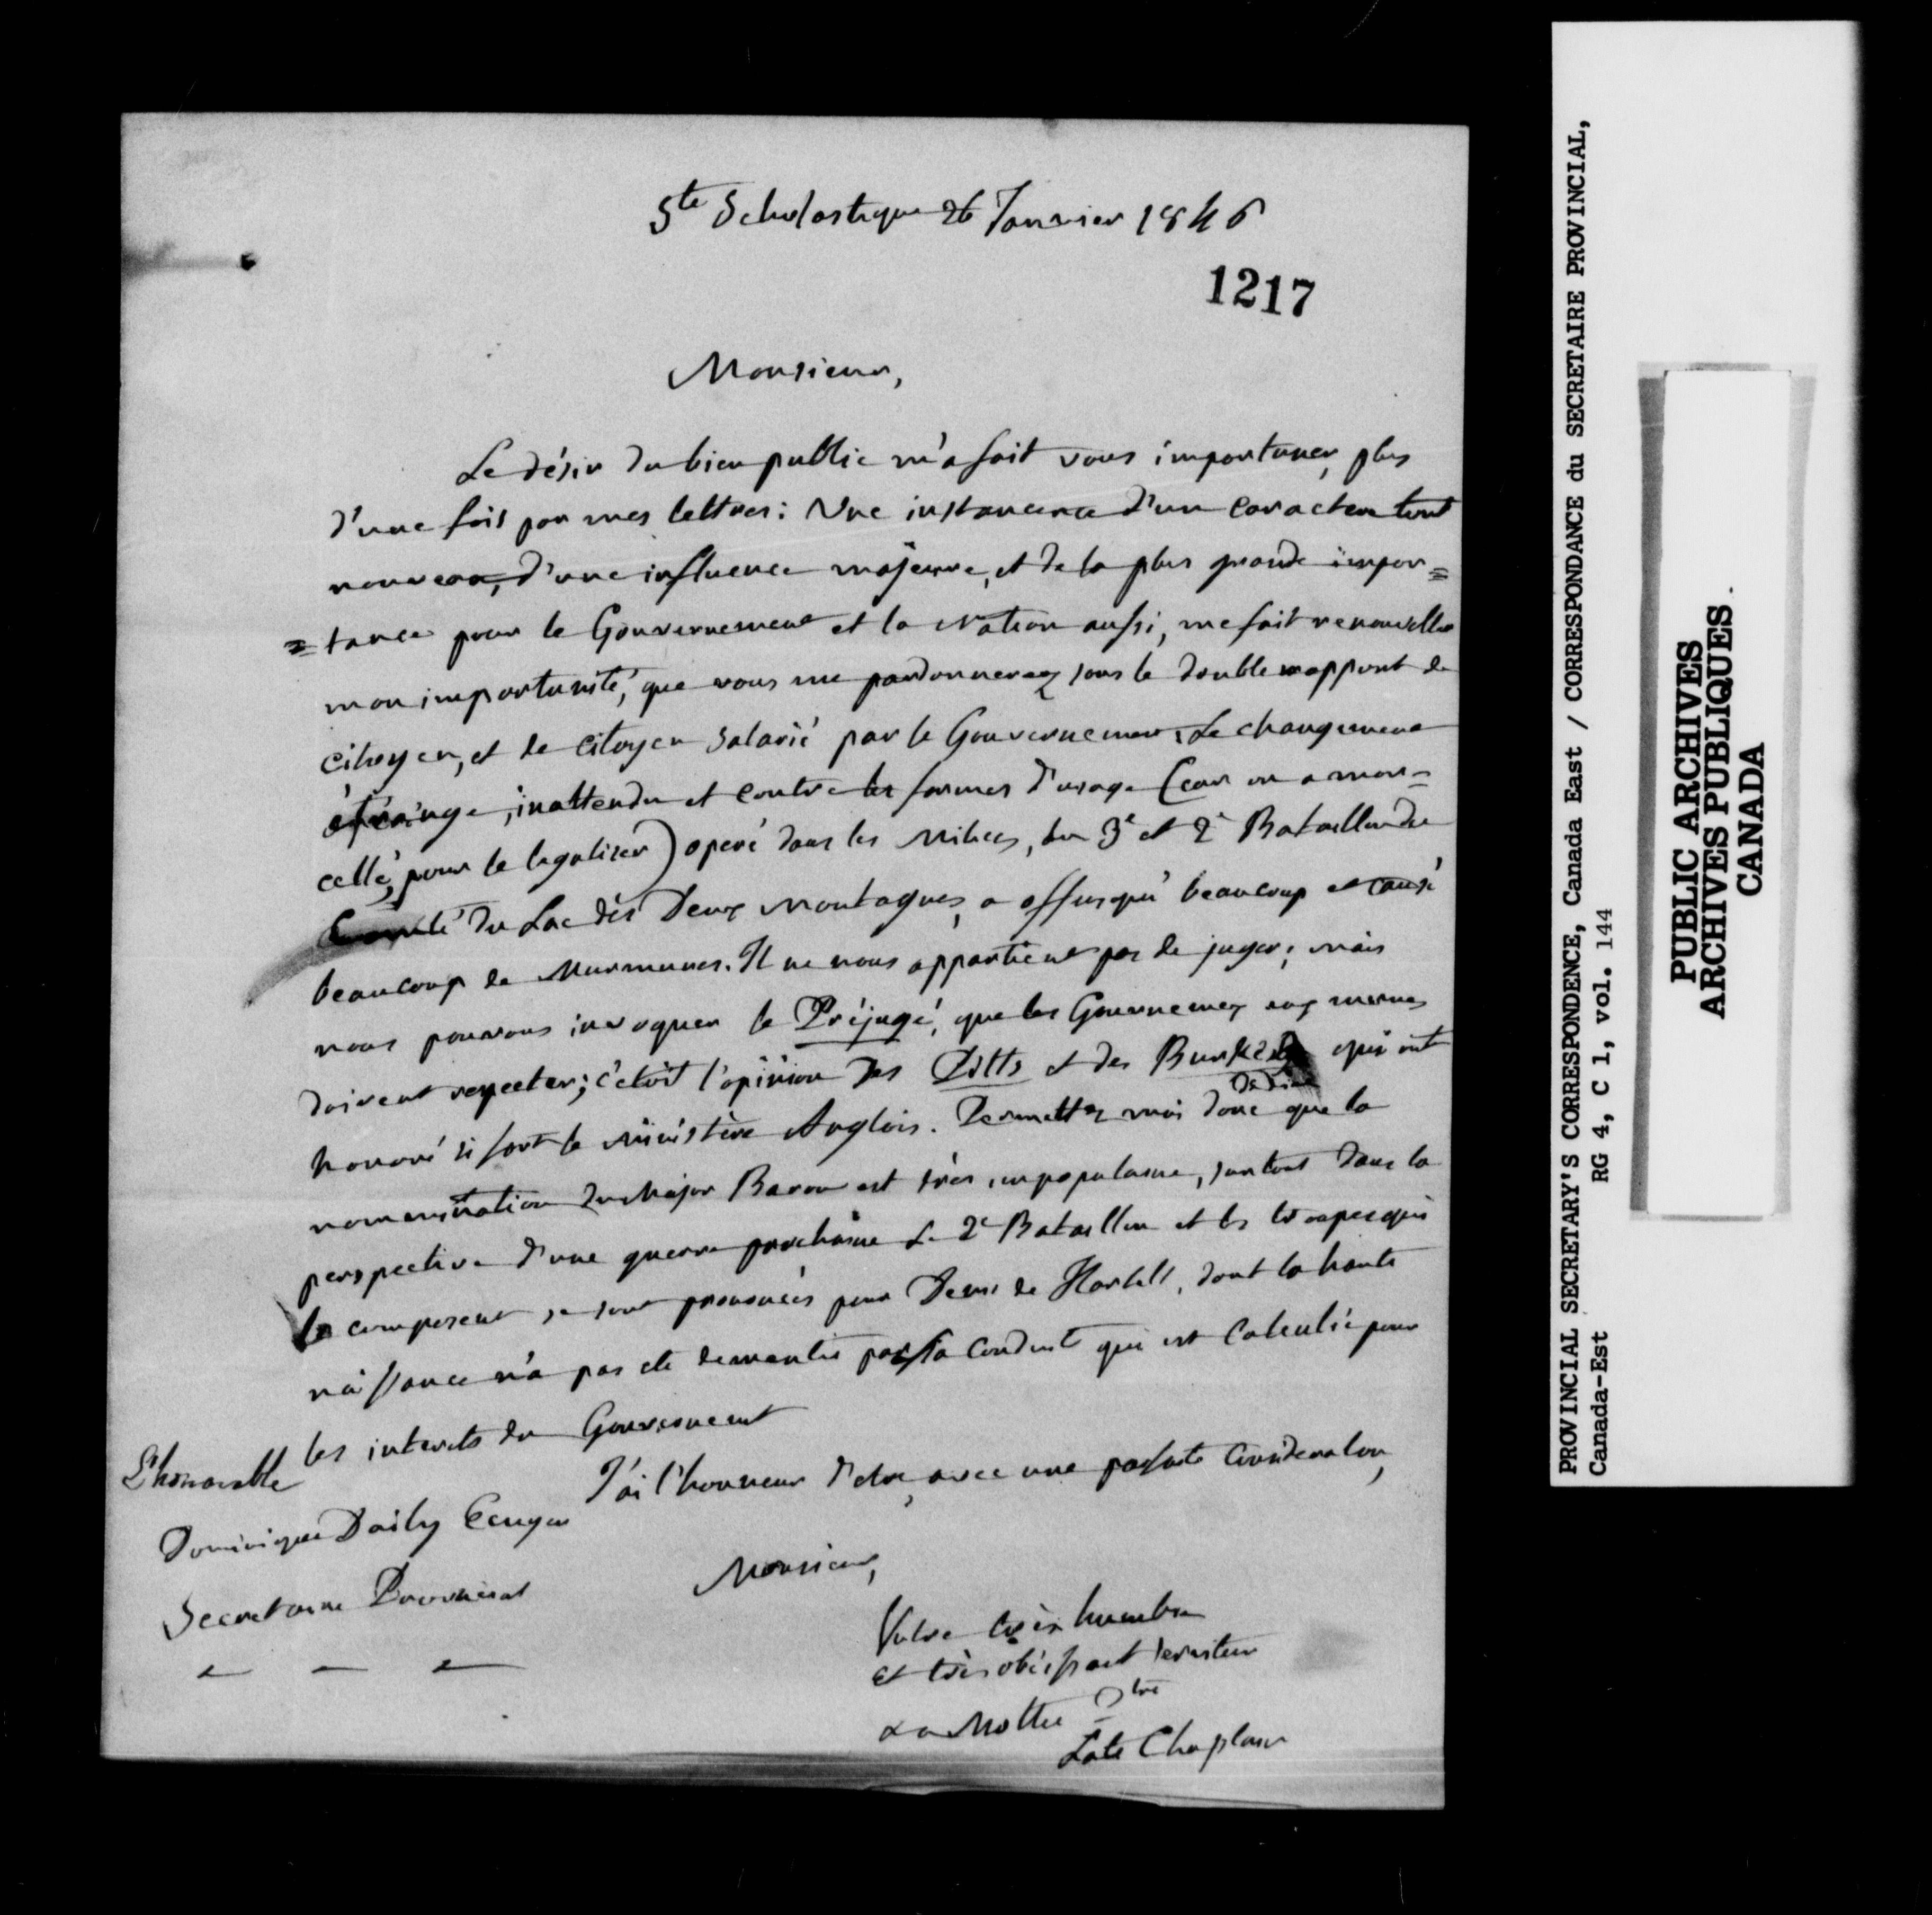 Ste Scholastique 26 Janvier 1846
1217
Monsieur,
Le désir du bien public m'a fait vous importuner, plus
d'une fois par mes lettres: Une instance d'un caractere tout
nouveau, d'une influence majeure, et de la plus grande impor=
=tance pour le Gouvernement et la Nation aussi, me fait renouveller
mon importunité, que vous me pardonnerez sous le double rapport de
citoyen, et de citoyen salarié par le Gouvernement. Le changement
étrange, inattendu et contre les formes d'usage (car on a mor=
cellé, pour le legaliser) operé dans les Milices, du 3e et 2e Bataillon du
Comté du Lac des Deux Montagnes, a offusqué beaucoup et causé
beaucoup de Murmures. Il ne nous appartient pas de juger; mais
nous pouvons invoquer le Préjugé, que les Gouvernemens eux mêmes
doivent respecter; c'etoit l'opinion des Pitts et des Burkes qui ont
honoré si fort le Ministère Anglois. Permettez moi donc de dire que la
nomination du Major Baron est très impopulaire, surtout dans la
perspective d'une guerre prochaine Le 2e Bataillon et les troupes qui
le composent se sont prononcés pour Denis de Hertell, dont la haute
naissance n'a pas été dementie par sa conduite qui est calculée pour
les interets du Gouvernement
J'ai l'honneur d'etre, avec une parfaite Consideration,
L'honorable
Dominique Daily Ecuyer
Secretaire Provincial
Monsieur,
Votre très humble
et très obéissant serviteur
La Mothe Ptre
Late Chaplain
PROVINCIAL SECRETARY'S CORRESPONDENCE, Canada East / CORRESPONDANCE du SECRETAIRE PROVINCIAL,
Canada-Est RG 4, C 1, vol. 144
PUBLIC ARCHIVES
ARCHIVES PUBLIQUES
CANADA